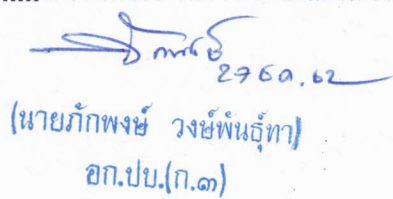 27 ธ.ค. 62
(นายภักพงษ์ วงษ์พันธุ์ทา)
อก.ปบ.(ก.๓)